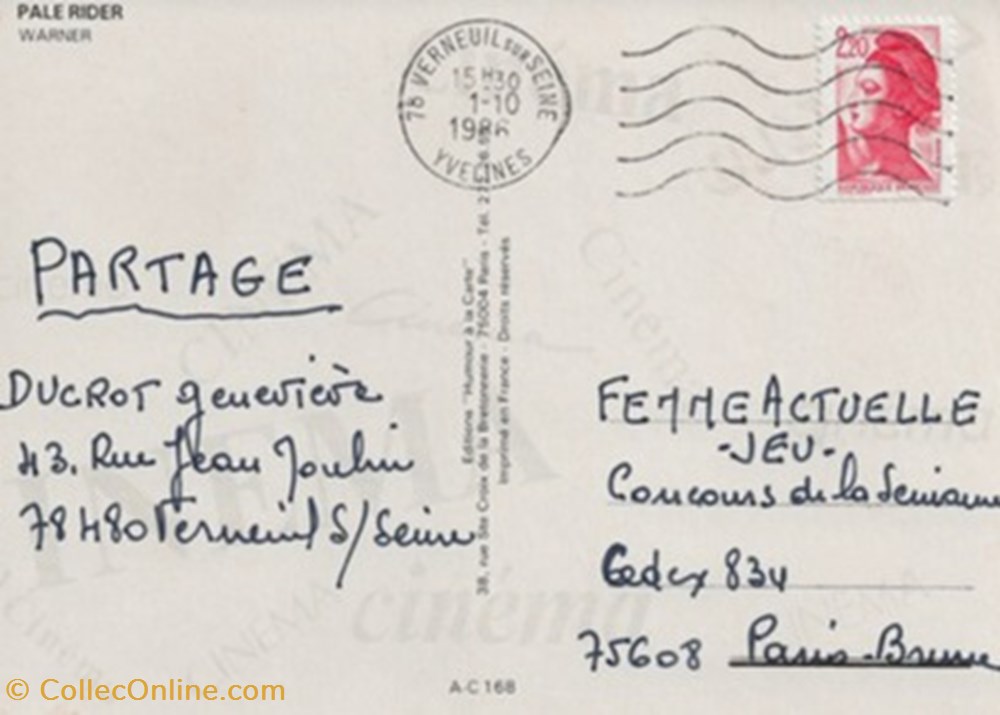 PALE RIDER
WARNER
78 VERNEUIL sur SEINE
15H30
1-10
1986
YVELINES
2,20
REPUBLIQUE FRANÇAISE
PARTAGE
DUCROT Geneviève
43. Rue Jean Joulin
78480 Verneuil S/Seine
Editions "Humour à la Carte"
38, rue Ste Croix de la Bretonnerie - 75004 Paris - Tel.
Imprimé en France - Droits réservés
FEMME ACTUELLE
-JEU-
Concours de la Semaine
Cedex 834
75608 Paris-Brune
A-C 168
CINEMA
cinéma
Cinéma
© CollecOnline.com